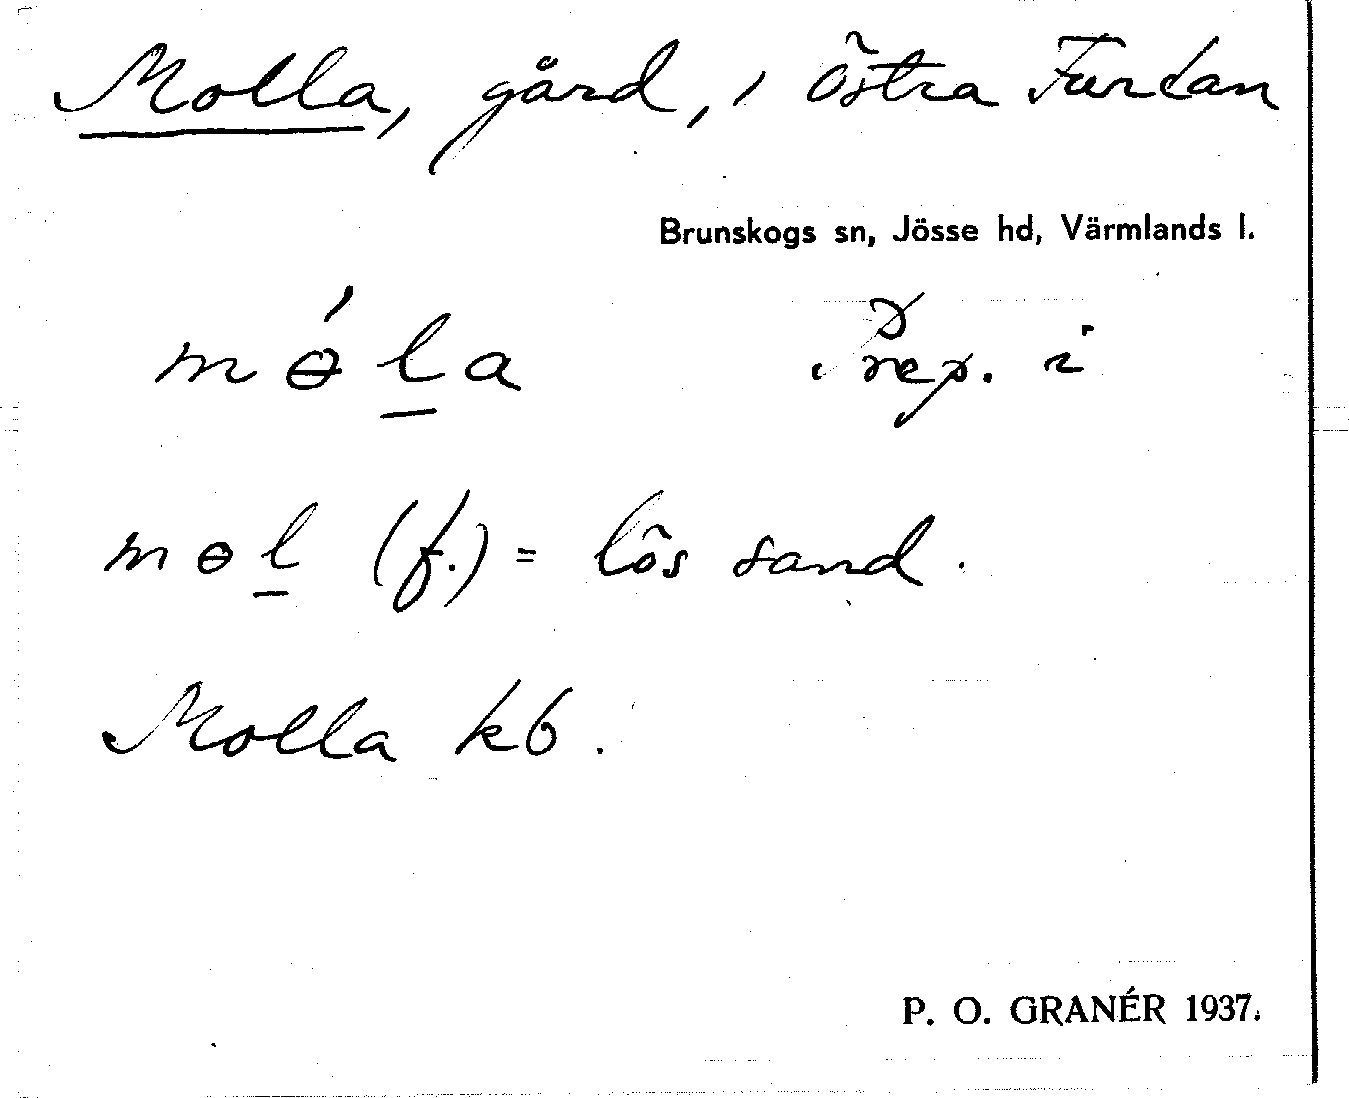 Molla, gård, i Östra Furtan
Brunskogs sn, Jösse hd, Värmlands l.
mɵ́l̲a Prep. i
mɵl̲ (f.) = lös sand.
Molla kb.
P. O. GRANÉR 1937.